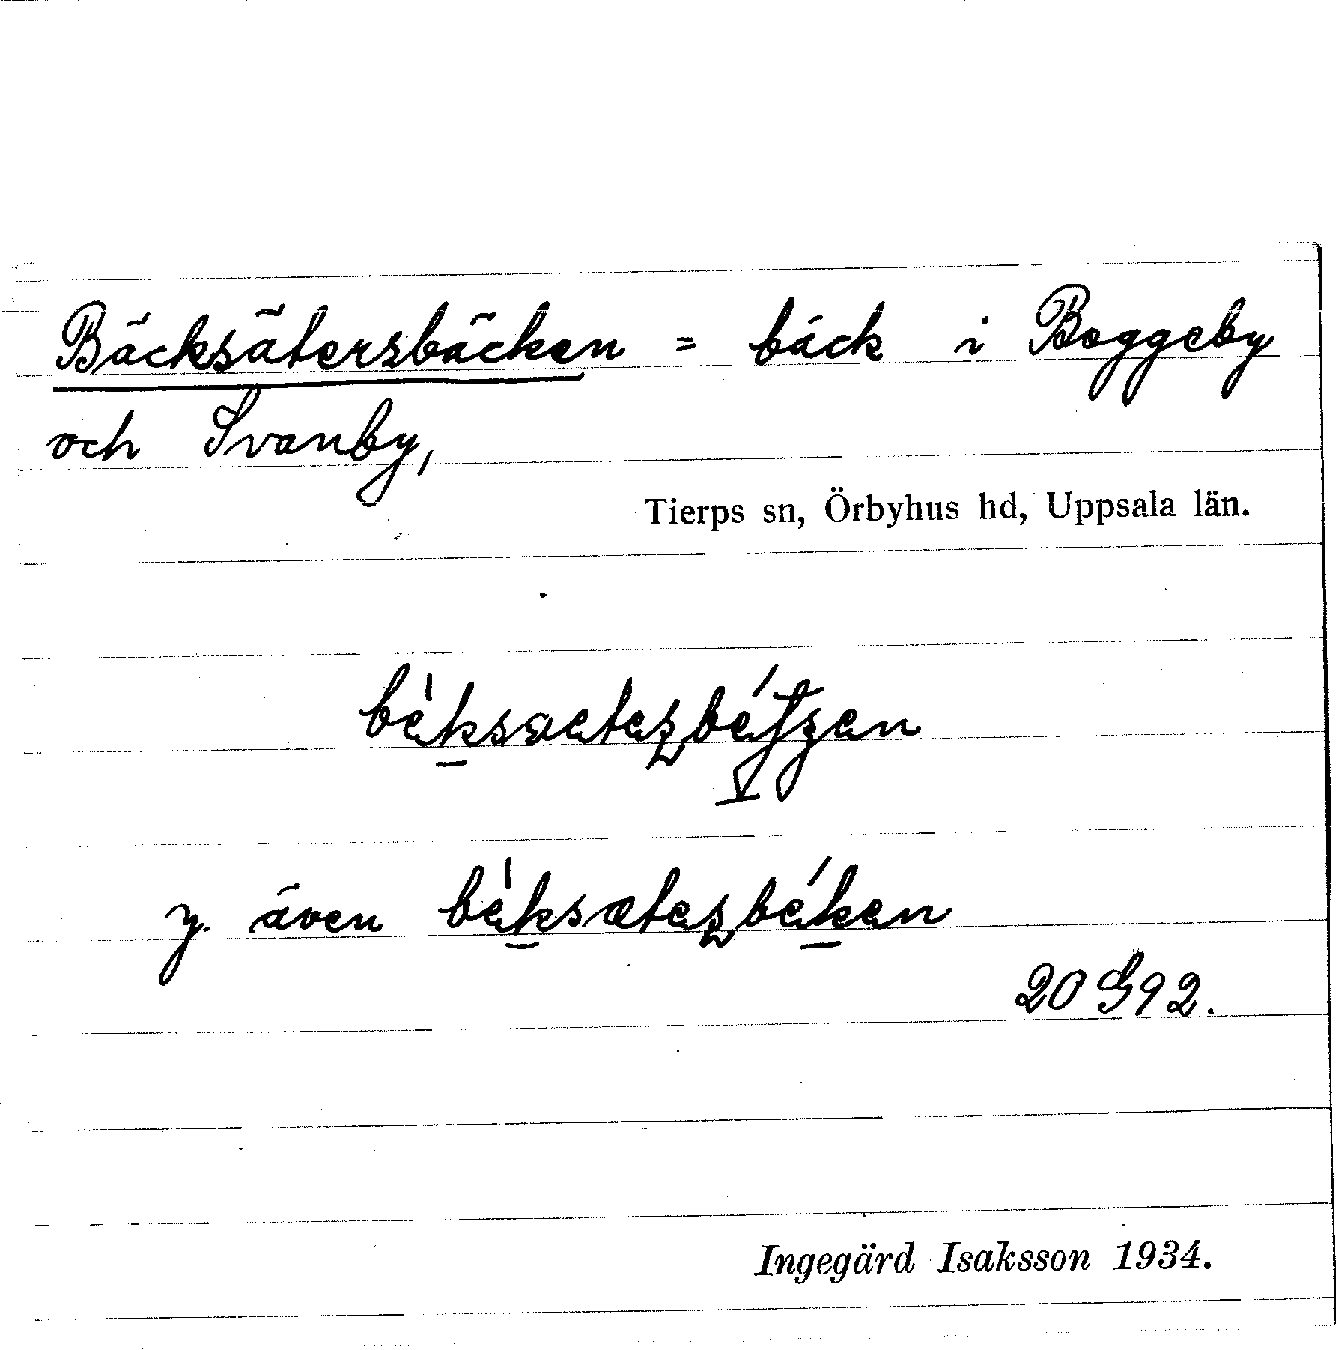 Bäcksätersbäcken = bäck i Boggeby
och Svanby,
Tierps sn, Örbyhus hd, Uppsala län.
y. även
20 G92.
Ingegärd Isaksson 1934.